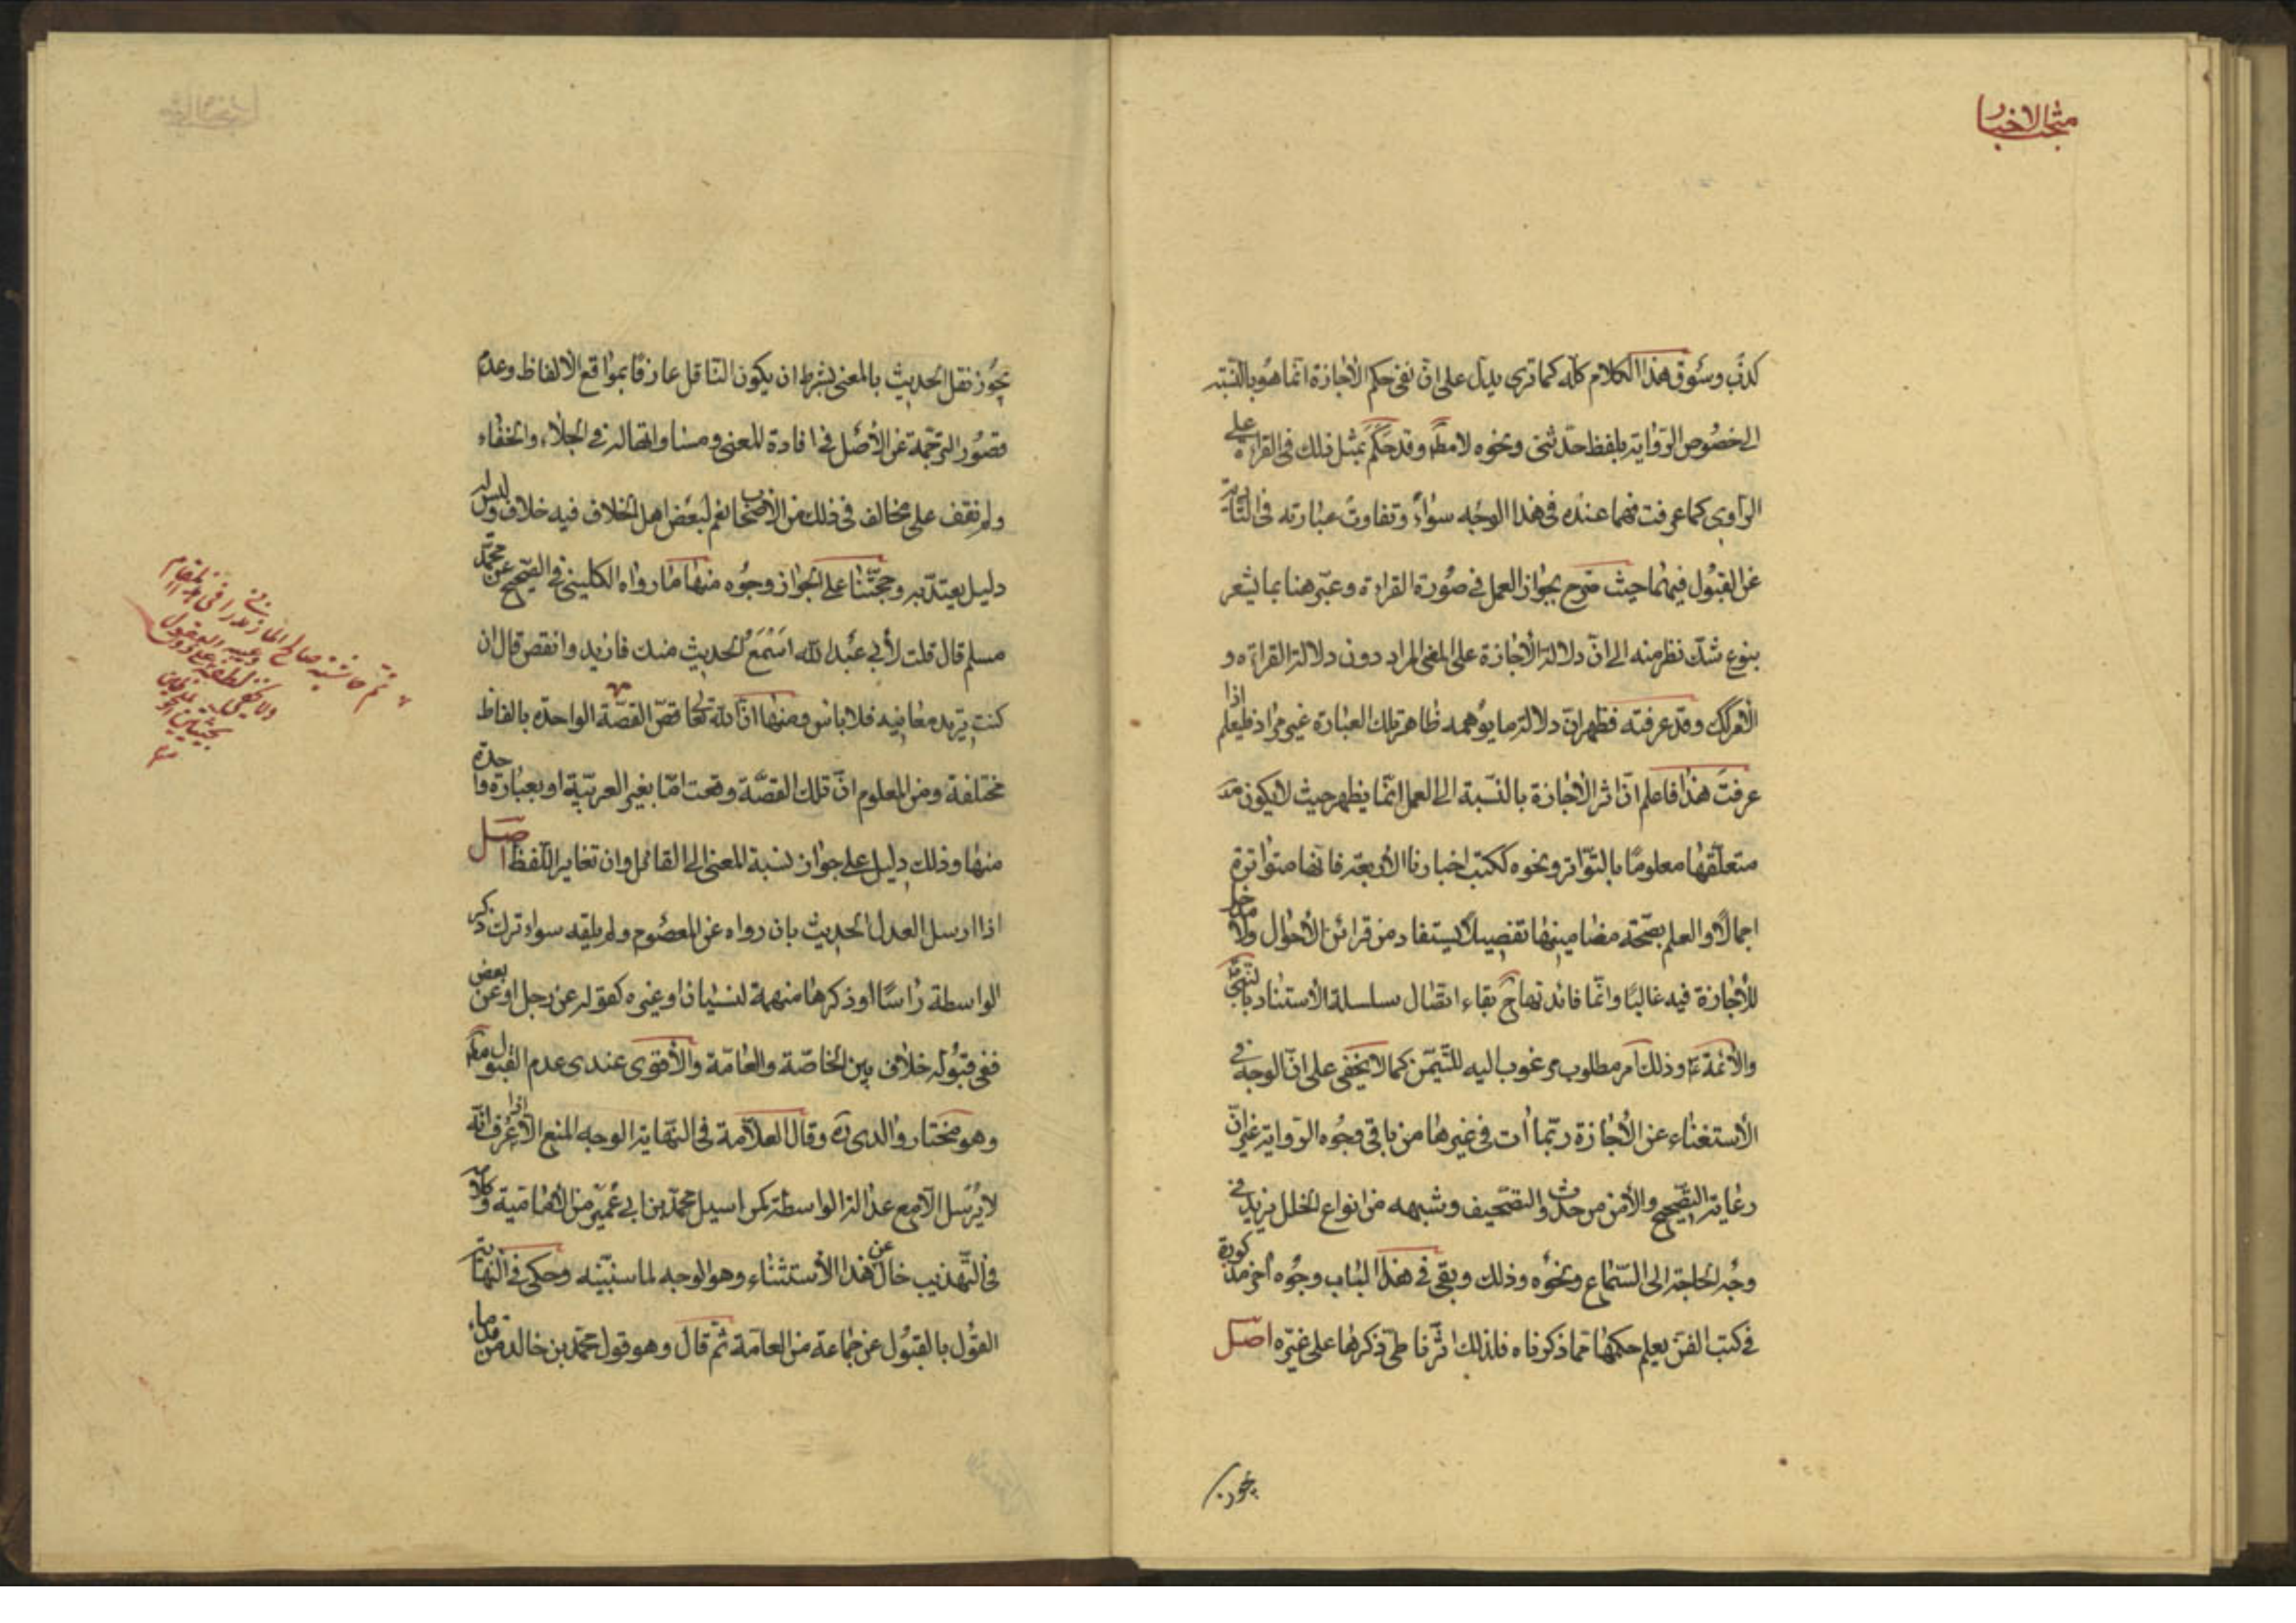 منتخب الاخبار
كذب وسوق هذا الكلام كله كما ترى يدل على ان نفى حكم الأجازة انما هو بالنسبة
الى خصوص الرواية بلفظ حدثنى ونحوه لا مطم وقد حكم بمثل ذلك فى القراءة على
الراوى كما عرفت فهما عنده فى هذا الوجه سواء وتفاوت عبارته فى التأدية
عن القبول فيهما حيث صرح بجواز العمل فى صورة القراءة وعبر هنا بما يشعر
بنوع شك نظر منه الى ان دلالة الأجازة على المعنى المراد دون دلالة القراءة و
الامر كك وقد عرفته فظهر ان دلالة ما يوهمه ظاهر تلك العبارة غير مراد فليعلم اذا
عرفت هذا فاعلم ان اثر الأجازة بالنسبة الى العمل انما يظهر حيث لا يكون
متعلقها معلوما بالتواتر ونحوه ككتب اخبارنا الأربعة فانها متواترة
اجمالا والعلم بصحة مضامينها تفصيلا يستفاد من قرائن الأحوال ولا مدخل
للأجازة فيه غالبا وانما فائدتها ح بقاء اتصال سلسلة الأستناد بالنبى
والأئمة ع وذلك امر مطلوب مرغوب اليه للتيمن كما لا يخفى على ان الوجه فى
الأستغناء عن الأجازة ربما ات فى غيرها من باقى وجوه الرواية غير ان
رعاية التصحيح والأمن من حدوث التصحيف وشبهه من انواع الخلل يزيد فى
وجه الحاجة الى السماع ونحوه وذلك وبقى فى هذا الباب وجوه اخر مذكورة
فى كتب الفن يعلم حكمها مما ذكرناه فلذلك اثرنا طى ذكرها على غيره اصل
يجوز
يجوز نقل الحديث بالمعنى بشرط ان يكون الناقل عارفا بمواقع الالفاظ وعدم
قصور الترجمة عن الأصل فى افادة المعنى ومساواتها له فى الجلاء والخفاء
ولم نقف على مخالف فى ذلك من الأصحاب نعم لبعض اهل الخلاف فيه خلاف وليس له
دليل يعتد به وحجتنا على الجواز وجوه منها ما رواه الكلينى فى الصحيح عن محمد
مسلم قال قلت لأبى عبد الله اسمع الحديث منك فازيد وانقص قال ان
كنت تريد معانيه فلا باس ومنها ان الله تعا قص القصة الواحدة بالفاظ
مختلفة ومن المعلوم ان تلك القصة وقعت اما بغير العربية او بعبارة واحدة
منها وذلك دليل على جواز نسبة المعنى الى القائل وان تغاير اللفظ اصل
اذا ارسل العدل الحديث بان رواه عن المعصوم ولم يلقه سواء ترك ذكر
الواسطة راسا او ذكرها مبهمة لنسيان او غيره كقوله عن رجل او عن بعض
ففى قبوله خلاف بين الخاصة والعامة والأقوى عندى عدم القبول مطم
وهو مختار والدى ره وقال العلامة فى النهاية الوجه المنع الا اذا عرف انه
لا يرسل الا مع عدالة الواسطة كمراسيل محمد بن ابى عمير من الأمامية وكلامه
فى التهذيب خال عن هذا الأستثناء وهو الوجه لما سنبينه وحكى فى النهاية
القول بالقبول عن جماعة من العامة ثم قال وهو قول محمد بن خالد من قدماء